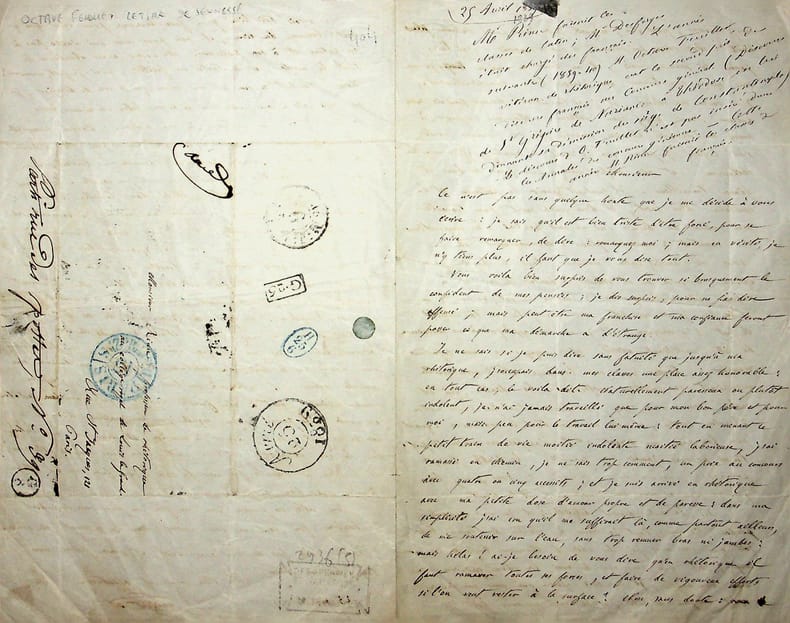 OCTAVE FEUILLET LETTRE DE JEUNESSE
25 Avril
Mr Rinn faisait la
classe de latin ; Mr Desforges
était chargé du français. L'année
suivante (1839-40) M. Octave Feuillet,
vétéran de rhétorique, eut le second prix de
discours français au Concours général (Discours
de St Grégoire de Nazianze à Théodose, en lui
donnant sa démission du siège de Constantinople)
le discours de O. Feuillet n'est pas inséré dans
les Annales des concours généraux. Cette
année M. Rinn faisait la classe de
français.
Monsieur
Ce n'est pas sans quelque honte que je me décide à vous
écrire : je sais qu'il est bien triste d'être forcé, pour se
faire remarquer, de dire : remarquez moi ; mais en vérité, je
n'y tiens plus, il faut que je vous dise tout.
Vous voilà bien surpris de vous trouver si brusquement le
confident de mes pensées ; je dis surpris, pour ne pas dire
offensé ; mais peut être ma franchise et ma confiance feront
passer ce que ma démarche a d'étrange.
Je ne sais si je puis dire sans fatuité que jusqu'à ma
rhétorique, j'occupais dans mes classes une place assez honorable :
en tout cas, le voilà dit. Naturellement paresseux ou plutôt
indolent, je n'ai jamais travaillé que pour mon bon père et pour
moi, mais peu pour le travail lui même : tout en menant ce
petit train de vie moitié indolente moitié laborieuse, j'ai
ramassé en chemin, je ne sais trop comment, un prix au concours
avec quatre ou cinq accessits ; et je suis arrivé en rhétorique
avec ma petite dose d'amour propre et de paresse : dans ma
simplicité j'ai cru qu'il me suffirait là comme partout ailleurs,
de me soutenir sur l'eau, sans trop remuer bras ni jambes :
mais hélas ! ai-je besoin de vous dire qu'en rhétorique il
faut ramasser toutes ses forces, et faire de vigoureux efforts
si l'on veut rester à la surface ?
Monsieur Rinn
professeur de rhétorique
au collège royal de Louis le Grand
Rue St Jacques,
Paris.
rue des Postes No
G-25